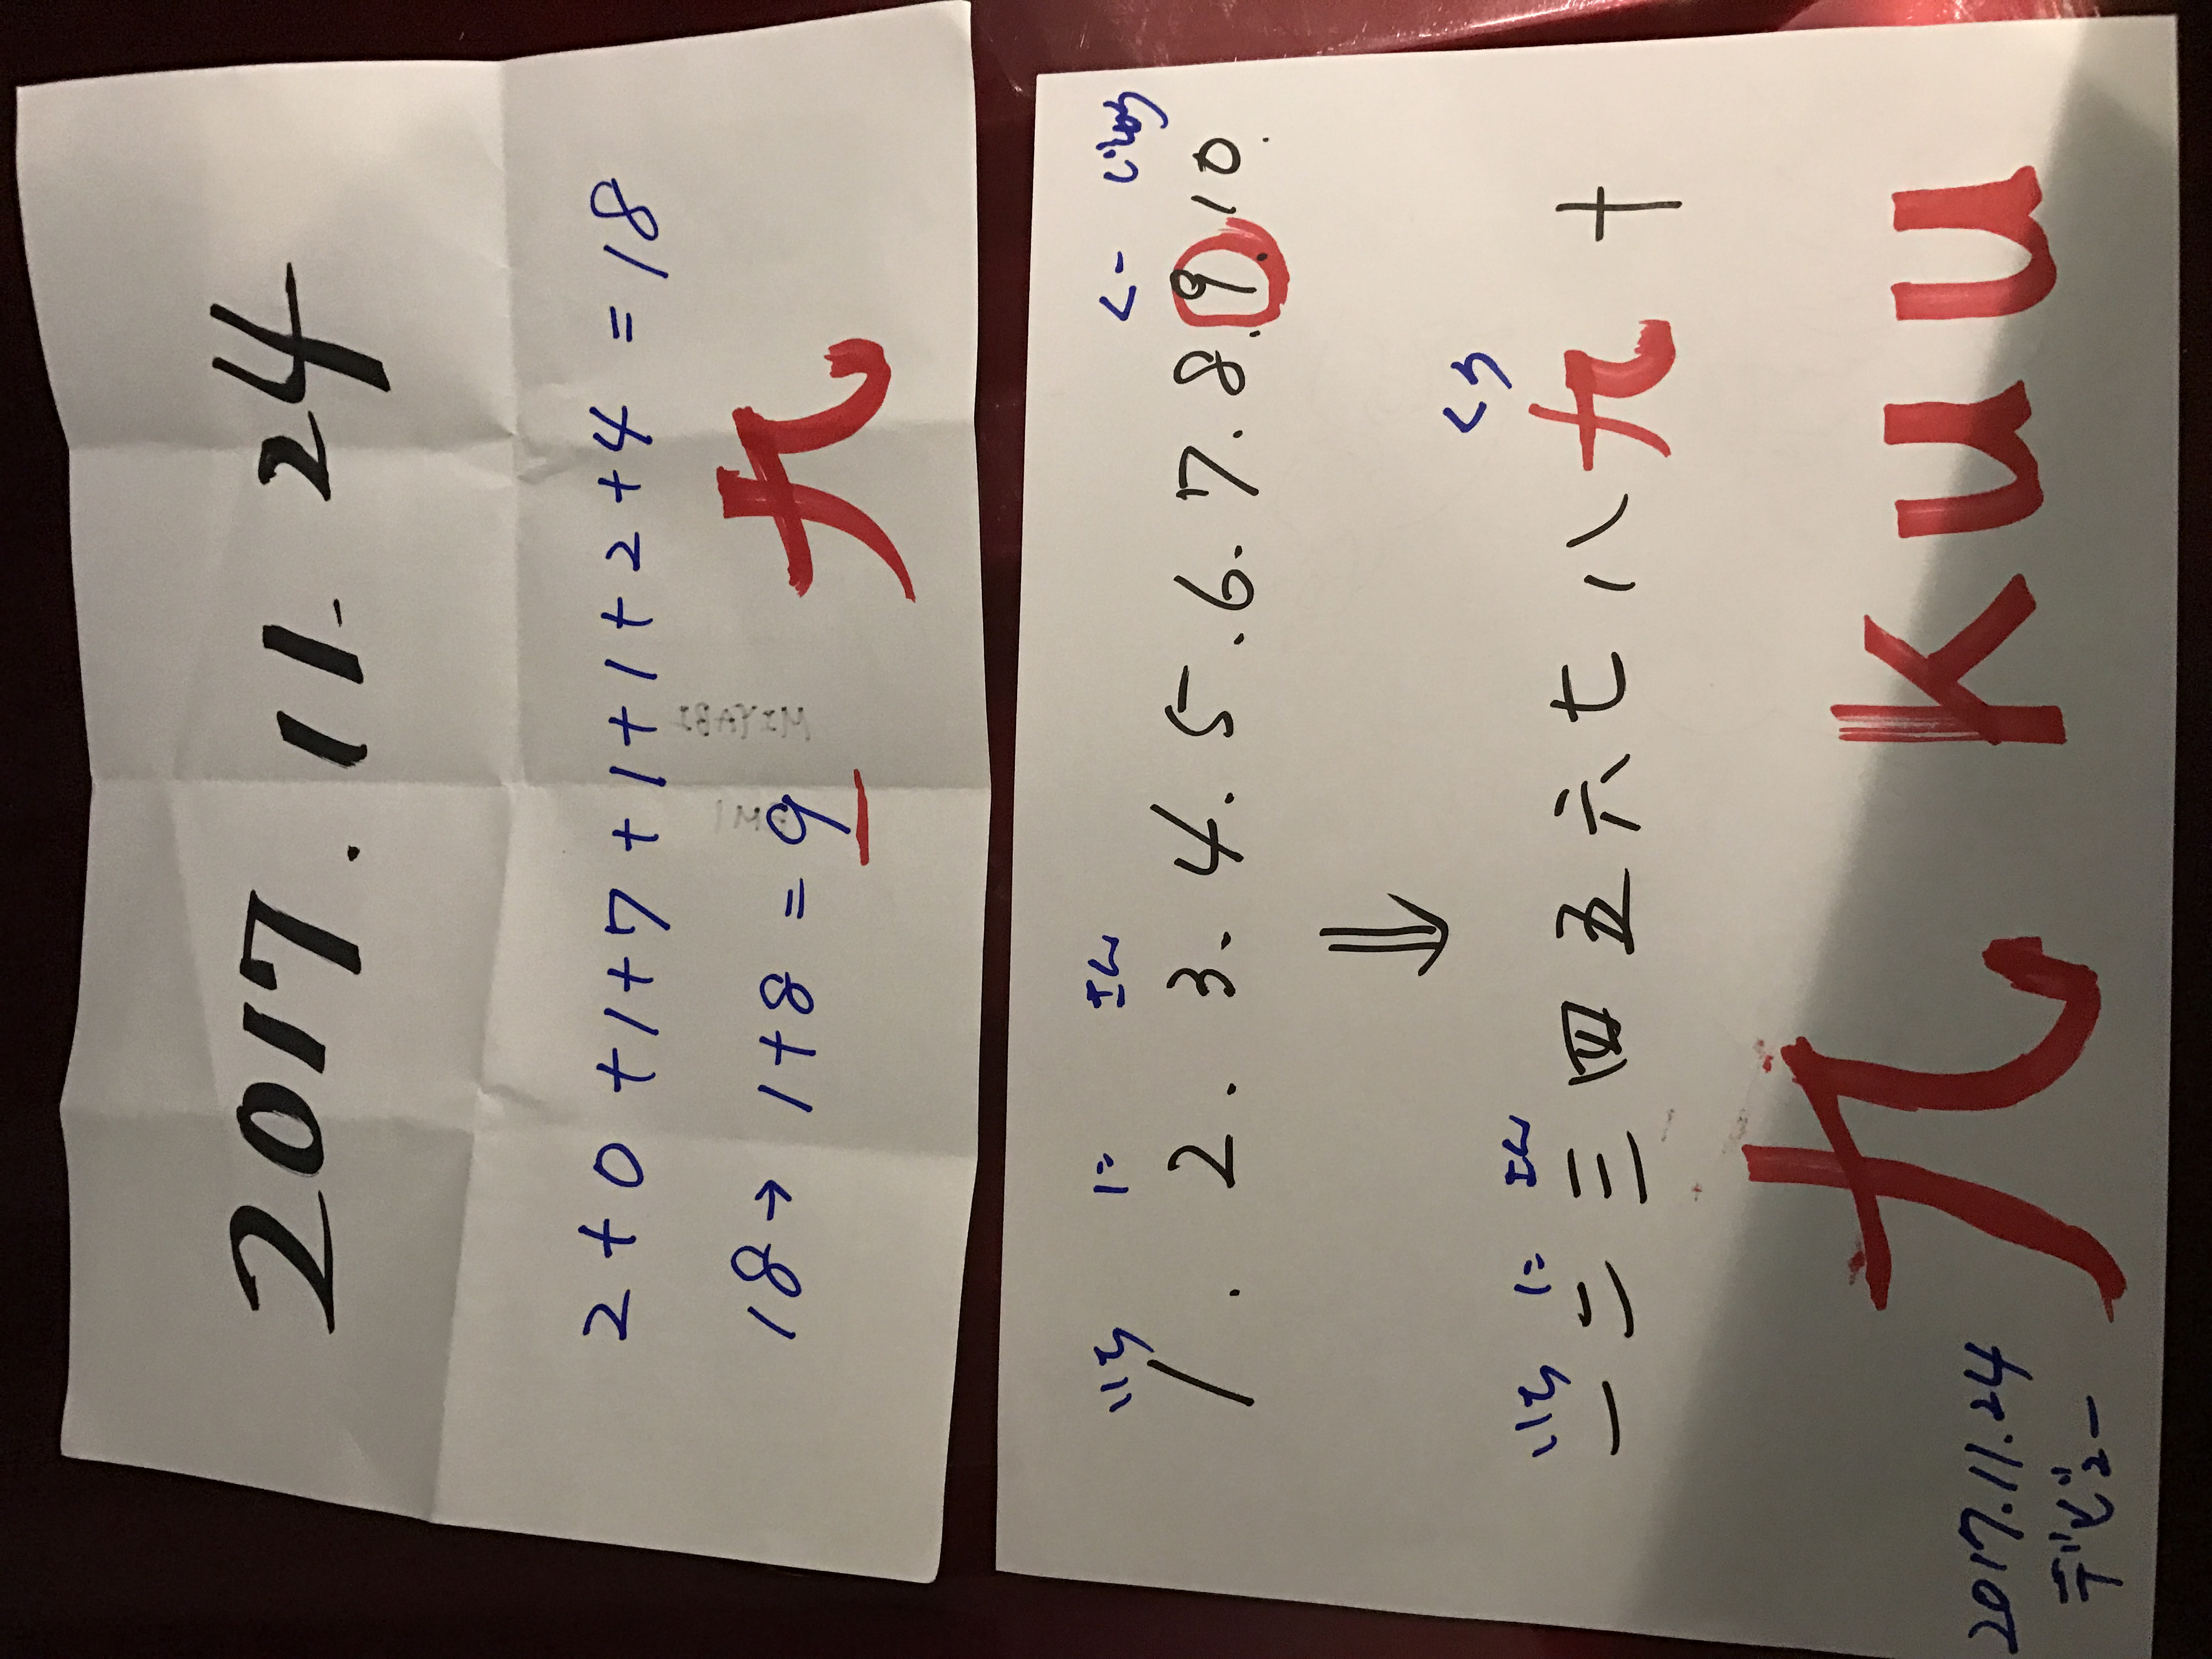 2017.11.24
2+0+1+7+1+1+2+4=18
18→1+8=9
九
いち に さん く- じゅう
1.2.3.4.5.6.7.8.9.10.
⇓
いち に さん くう
一二三四五六七八九十
九 kuu
2017.11.24
デビュー